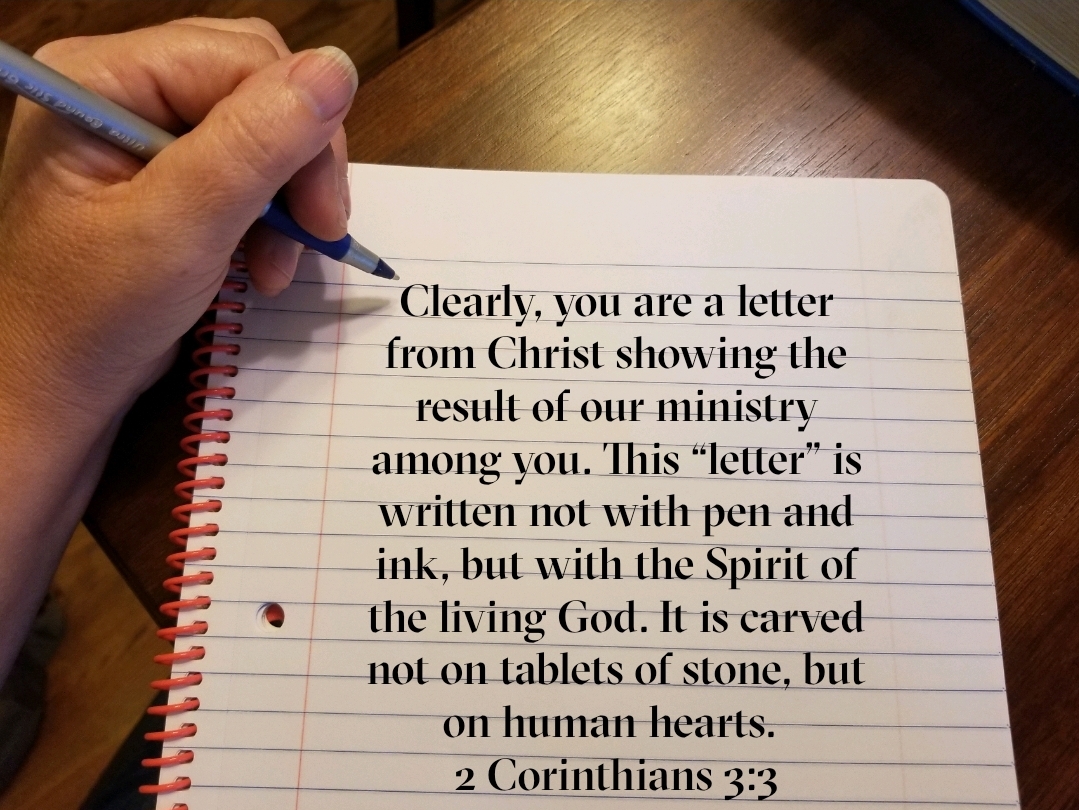 Clearly, you are a letter
from Christ showing the
result of our ministry
among you. This “letter” is
written not with pen and
ink, but with the Spirit of
the living God. It is carved
not on tablets of stone, but
on human hearts.
2 Corinthians 3:3